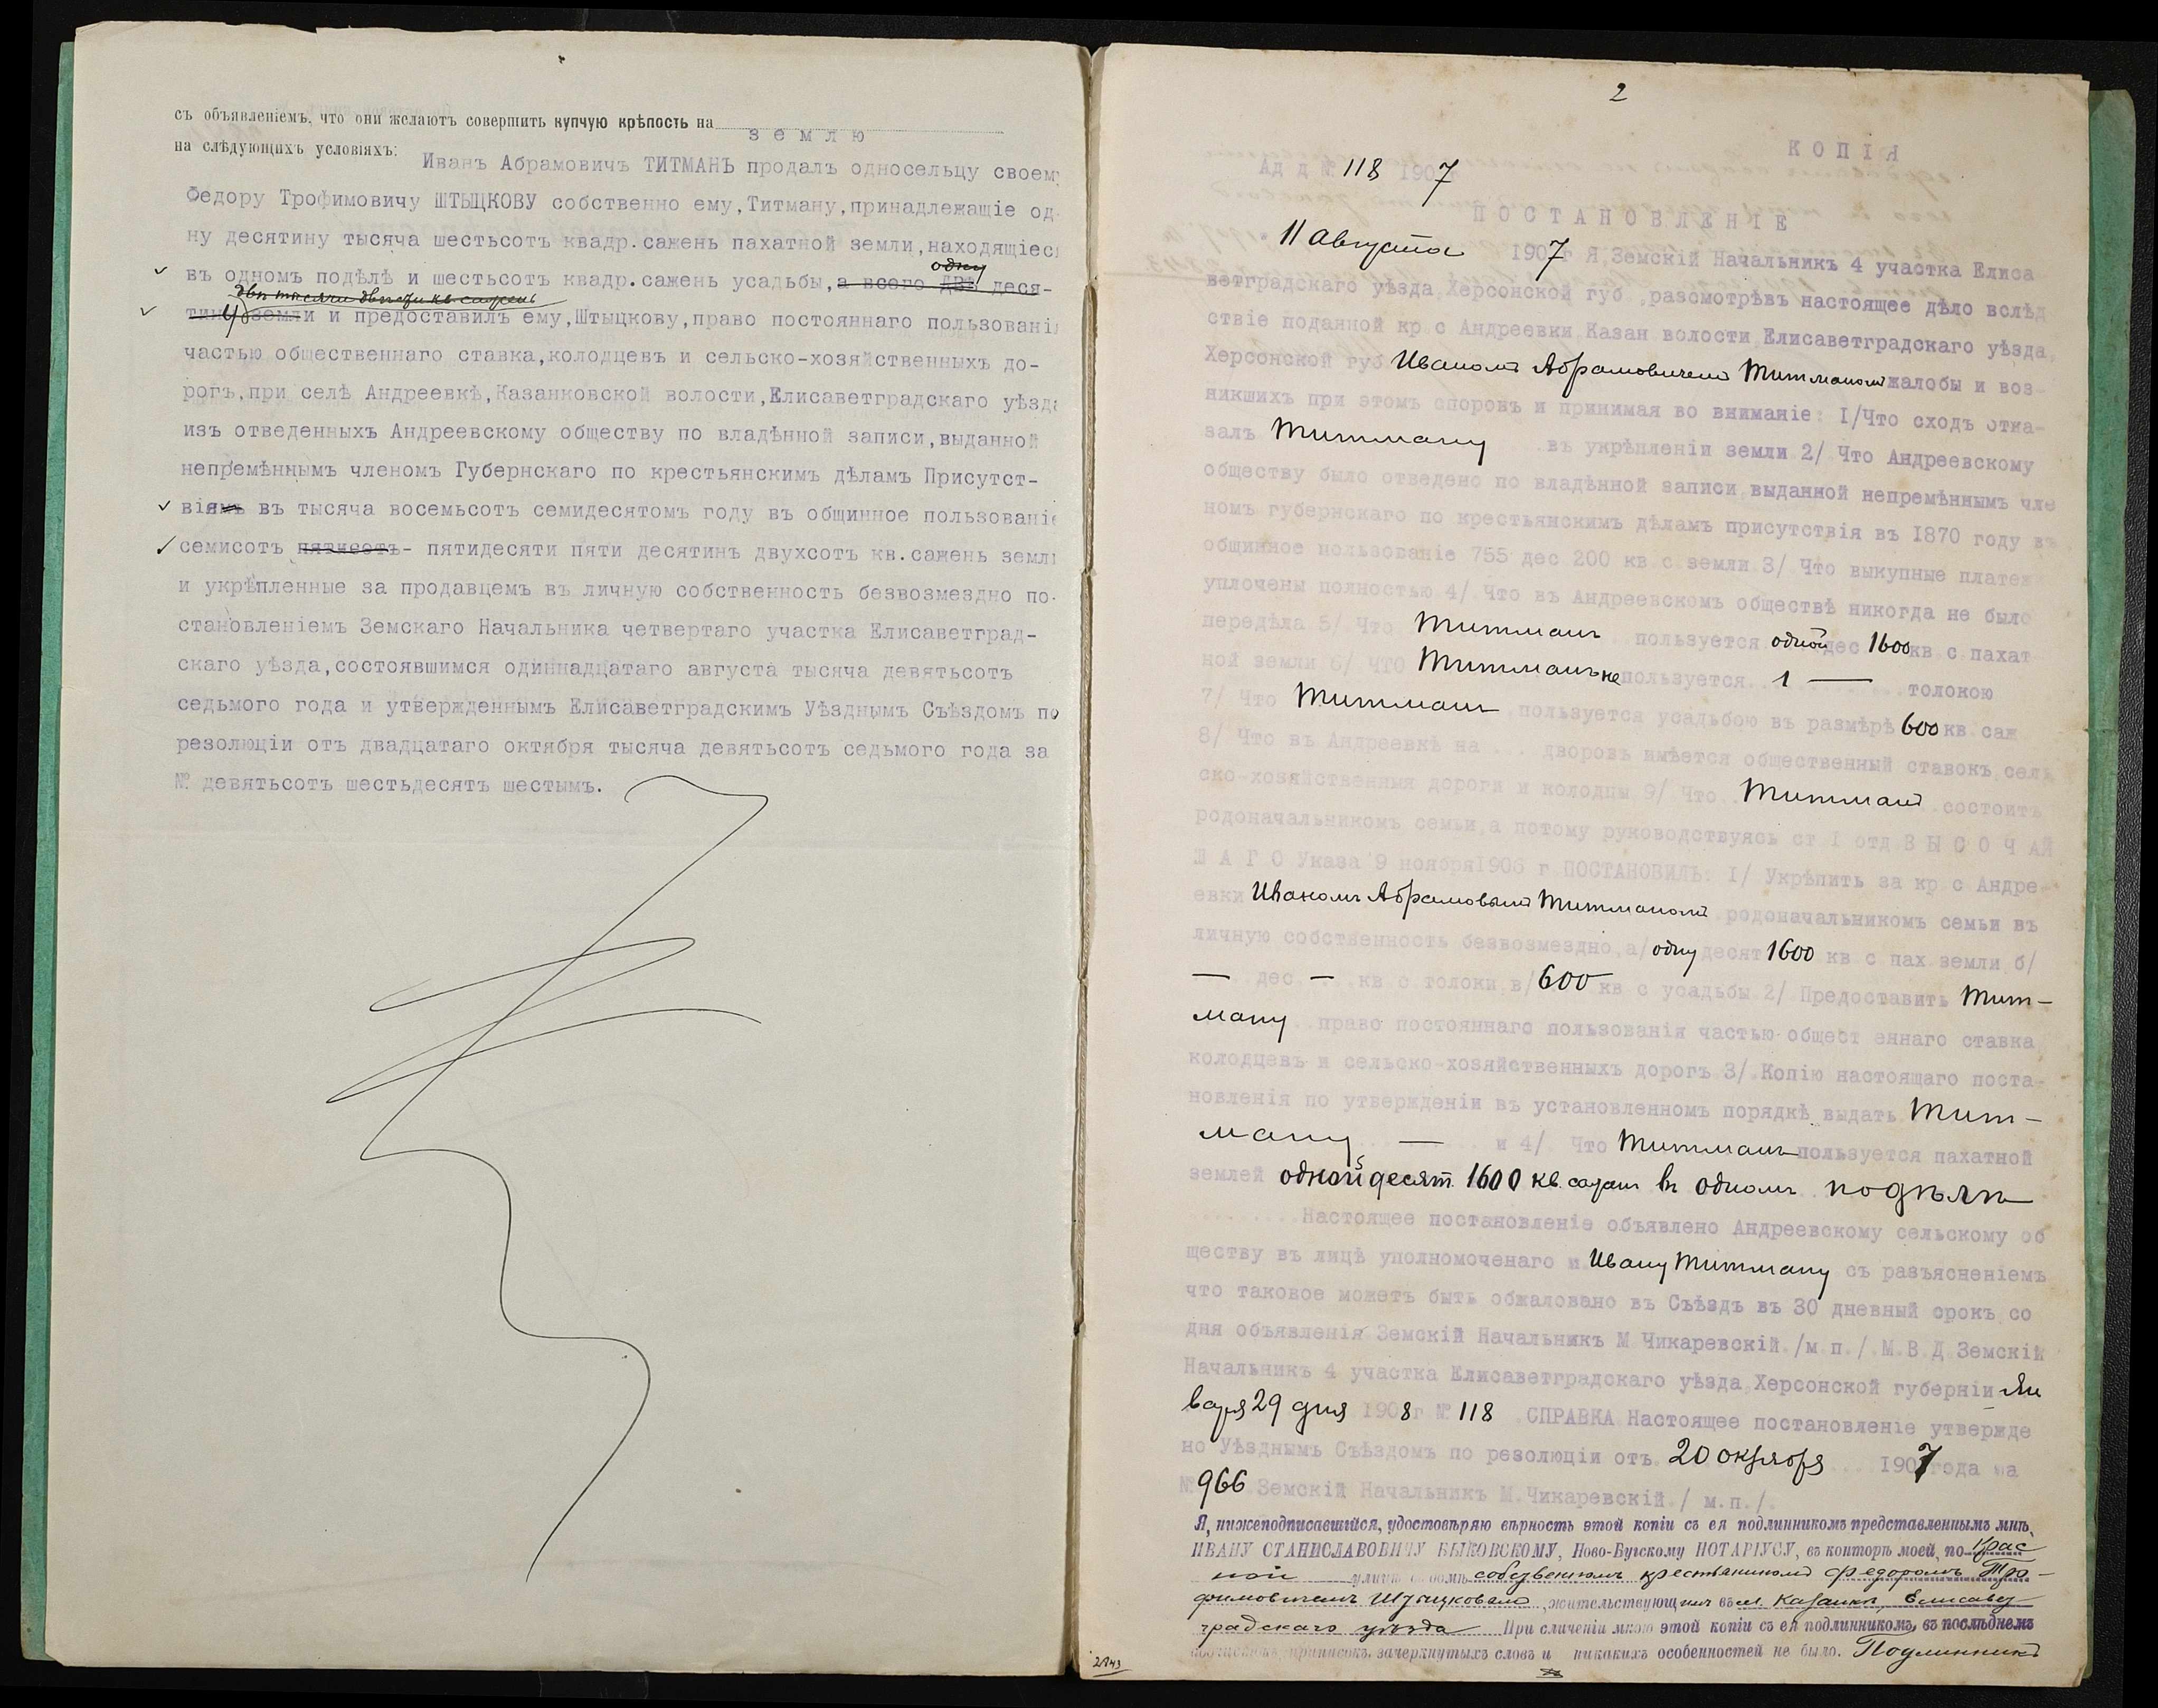 съ объявленіемъ, что они желаютъ совершить купчую крѣпость на
землю
на слѣдующихъ условіяхъ:
Иванъ Абрамовичъ ТИТМАНЪ продалъ односельцу своему
Федору Трофимовичу ШТЫЦКОВУ собственно ему,Титману,принадлежащіе од-
ну десятину тысяча шестьсотъ квадр.сажень пахатной земли,находящіеся
одну
въ одномъ подѣлѣ и шестьсотъ квадр.сажень усадьбы,а всего двѣ деся-
двѣ тысячи двѣсти кв сажень
тины земли и предоставилъ ему,Штыцкову,право постояннаго пользованія
частью общественнаго ставка,колодцевъ и сельско-хозяйственныхъ до-
рогъ,при селѣ Андреевкѣ,Казанковской волости,Елисаветградскаго уѣзда
изъ отведенныхъ Андреевскому обществу по владѣнной записи,выданной
непремѣннымъ членомъ Губернскаго по крестьянскимъ дѣламъ Присутст-
віямъ въ тысяча восемьсотъ семидесятомъ году въ общинное пользованіе
семисотъ пятисотъ- пятидесяти пяти десятинъ двухсотъ кв.сажень земли
и укрѣпленные за продавцемъ въ личную собственность безвозмездно по-
становленіемъ Земскаго Начальника четвертаго участка Елисаветград-
скаго уѣзда,состоявшимся одиннадцатаго августа тысяча девятьсотъ
седьмого года и утвержденнымъ Елисаветградскимъ Уѣзднымъ Съѣздомъ по
резолюціи отъ двадцатаго октября тысяча девятьсотъ седьмого года за
№ девятьсотъ шестьдесятъ шестымъ.
2
КОПІЯ
Ад д № 118 1907
ПОСТАНОВЛЕНІЕ
11 Августа 1907 г Я,Земскій Начальникъ 4 участка Елиса
ветградскаго уѣзда Херсонской губ ,разсмотрѣвъ настоящее дѣло вслѣд
ствіе поданной кр с Андреевки Казан волости Елисаветградскаго уѣзда,
Херсонской губ Иваномъ Абрамовичемъ Титманомъ жалобы и воз-
никшихъ при этомъ споровъ и принимая во вниманіе: I/Что сходъ отка-
залъ Титману въ укрѣпленіи земли 2/ Что Андреевскому
обществу было отведено по владѣнной записи выданной непремѣннымъ чле
номъ губернскаго по крестьянскимъ дѣламъ присутствія въ I870 году въ
общинное пользованіе 755 дес 200 кв с земли 3/ Что выкупные платеж
уплочены полностью 4/ Что въ Андреевскомъ обществѣ никогда не было
передѣла 5/ Что Титманъ пользуется одной дес 1600 кв с пахат
ной земли 6/ ЧТО Титманъ не пользуется 1 — толокою
7/ Что Титманъ пользуется усадьбою въ размѣрѣ 600 кв саж
8/ Что въ Андреевкѣ на ... дворовъ имѣется общественный ставокъ,сель
ско-хозяйственныя дороги и колодцы 9/ Что Титманъ состоитъ
родоначальникомъ семьи,а потому руководствуясь ст I отд ВЫСОЧАЙ
ШАГО Указа 9 ноября1906 г ПОСТАНОВИЛЪ: I/ Укрѣпить за кр с Андре-
евки Иваномъ Абрамовымъ Титманомъ родоначальникомъ семьи въ
личную собственность безвозмездно,а/ одну десят 1600 кв с пах земли б/
— дес — кв с толоки в/ 600 кв с усадьбы 2/ Предоставить Тит-
ману право постояннаго пользованія частью общест еннаго ставка
колодцевъ и сельско-хозяйственныхъ дорогъ 3/ Копію настоящаго поста-
новленія по утвержденіи въ установленномъ порядкѣ выдать Тит-
ману — и 4/ Что Титманъ пользуется пахатной
землей одной десят. 1600 кв. сажен въ одномъ подѣлѣ
Настоящее постановленіе объявлено Андреевскому сельскому об
ществу въ лицѣ уполномоченаго и Ивану Титману съ разъясненіемъ
что таковое можетъ быть обжаловано въ Съѣздъ въ 30 дневный срокъ со
дня объявленія Земскій Начальникъ М Чикаревскій /м п / М В Д Земскій
Начальникъ 4 участка Елисаветградскаго уѣзда Херсонской губерніи Ян
варя 29 дня 1908 г № 118 СПРАВКА Настоящее постановленіе утвержде
но Уѣзднымъ Съѣздомъ по резолюціи отъ 20 октября 1907 года за
№ 966 Земскій Начальникъ М.Чикаревскій / м.п./.
Я, нижеподписавшійся, удостовѣряю вѣрность этой копіи съ ея подлинникомъ представленнымъ мнѣ,
ИВАНУ СТАНИСЛАВОВИЧУ БЫКОВСКОМУ, Ново-Бугскому НОТАРІУСУ, въ конторѣ моей, по Крас
ной улицѣ въ домѣ собственномъ крестьяниномъ Федоромъ Тро-
фимовичемъ Штыцковымъ, жительствующимъ въ м. Казанкѣ, Елисавет
градскаго уѣзда При сличеніи мною этой копіи съ ея подлинникомъ, въ послѣднемъ
приписокъ, зачеркнутыхъ словъ и никакихъ особенностей не было. Подлинникъ
2843